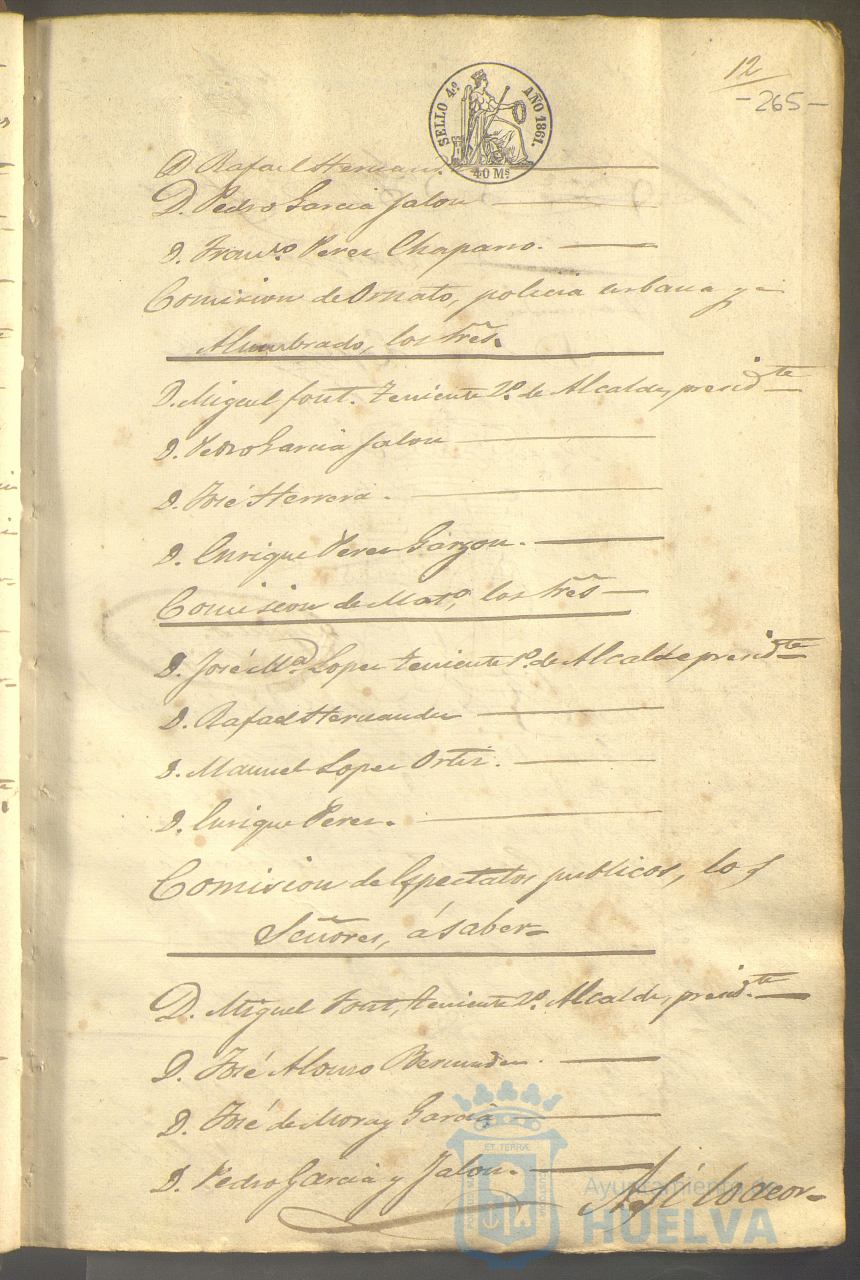 12
-265-
SELLO 4º AÑO 1861.
40 Mˢ
D. Rafael Hernan.
D. Pedro Garcia Jalon
D. Franᶜᵒ Perez Chaparro.
Comision de Ornato, policia urbana y
Alumbrado, los Srẽs.
D. Miguel Font. Teniente 2º de Alcalde, presidᵗᵉ
D. Pedro Garcia Jalon
D. José Herrera.
D. Enrique Perez Garzon.
Comision de Matº, los Srẽs
D. José Mª Lopez Teniente 1º de Alcalde presidᵗᵉ
D. Rafael Hernandez
D. Manuel Lopez Ortiz.
D. Enrique Perez.
Comision de Espectalos publicos, los
Señores, á saber
D. Miguel Font, teniente 2º Alcalde, presidᵗᵉ
D. José Alonso Bermudez.
D. José de Mora y Garcia
ET TERRÆ
D. Pedro Garcia y Jalon.
Así lo acor-
Ayuntamiento de
HUELVA